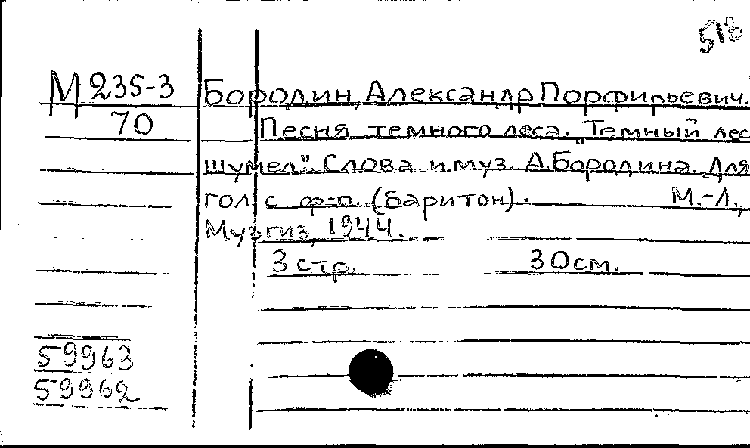 518
М 235-3 Бородин, Александр Порфирьевич.
70 Песня темного леса. "Темный лес
шумел". Слова и муз. А.Бородина. Для
гол. с ф-п. (баритон). М.-Л.,
Музгиз, 1944.
3 стр. 30см.
59963
59962